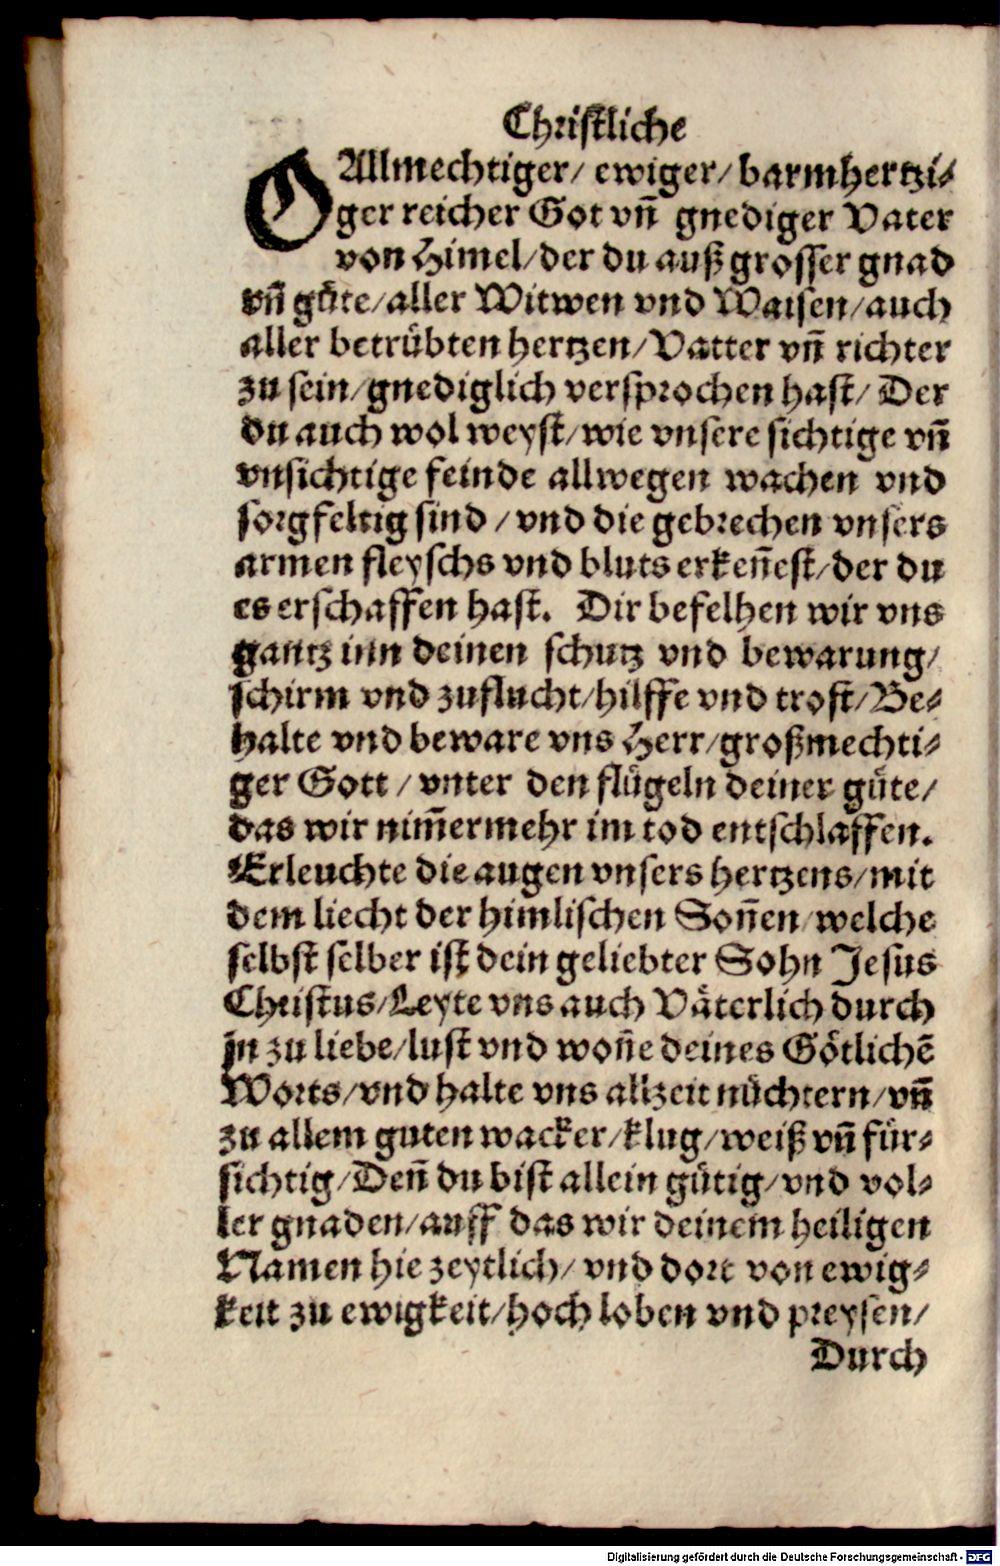 Christliche
O Allmechtiger/ ewiger/ barmhertzi⸗
ger reicher Got vn̄ gnediger Vater
von Himel/ der du auß grosser gnad
vn̄ guͤte/ aller Witwen vnd Waisen/ auch
aller betruͤbten hertzen/ Vatter vn̄ richter
zu sein/ gnediglich versprochen hast/ Der
du auch wol weyst/ wie vnsere sichtige vn̄
vnsichtige feinde allwegen wachen vnd
sorgfeltig sind / vnd die gebrechen vnsers
armen fleyschs vnd bluts erken̄est/ der du
es erschaffen hast. Dir befelhen wir vns
gantz inn deinen schutz vnd bewarung/
schirm vnd zuflucht/ hilffe vnd trost/ Be⸗
halte vnd beware vns Herr/ großmechti⸗
ger Gott / vnter den fluͤgeln deiner guͤte/
das wir nim̄ermehr im tod entschlaffen.
Erleuchte die augen vnsers hertzens/ mit
dem liecht der himlischen Son̄en/ welche
selbst selber ist dein geliebter Sohn Jesus
Christus/ Leyte vns auch Vaͤterlich durch
jn zu liebe/ lust vnd won̄e deines Goͤtlichē
Worts/ vnd halte vns allzeit nuͤchtern/ vn̄
zu allem guten wacker/ klug/ weiß vn̄ fuͤr⸗
sichtig/ Den̄ du bist allein guͤtig/ vnd vol⸗
ler gnaden/ auff das wir deinem heiligen
Namen hie zeytlich/ vnd dort von ewig⸗
keit zu ewigkeit/ hoch loben vnd preysen/
Durch
Digitalisierung gefördert durch die Deutsche Forschungsgemeinschaft - DFG